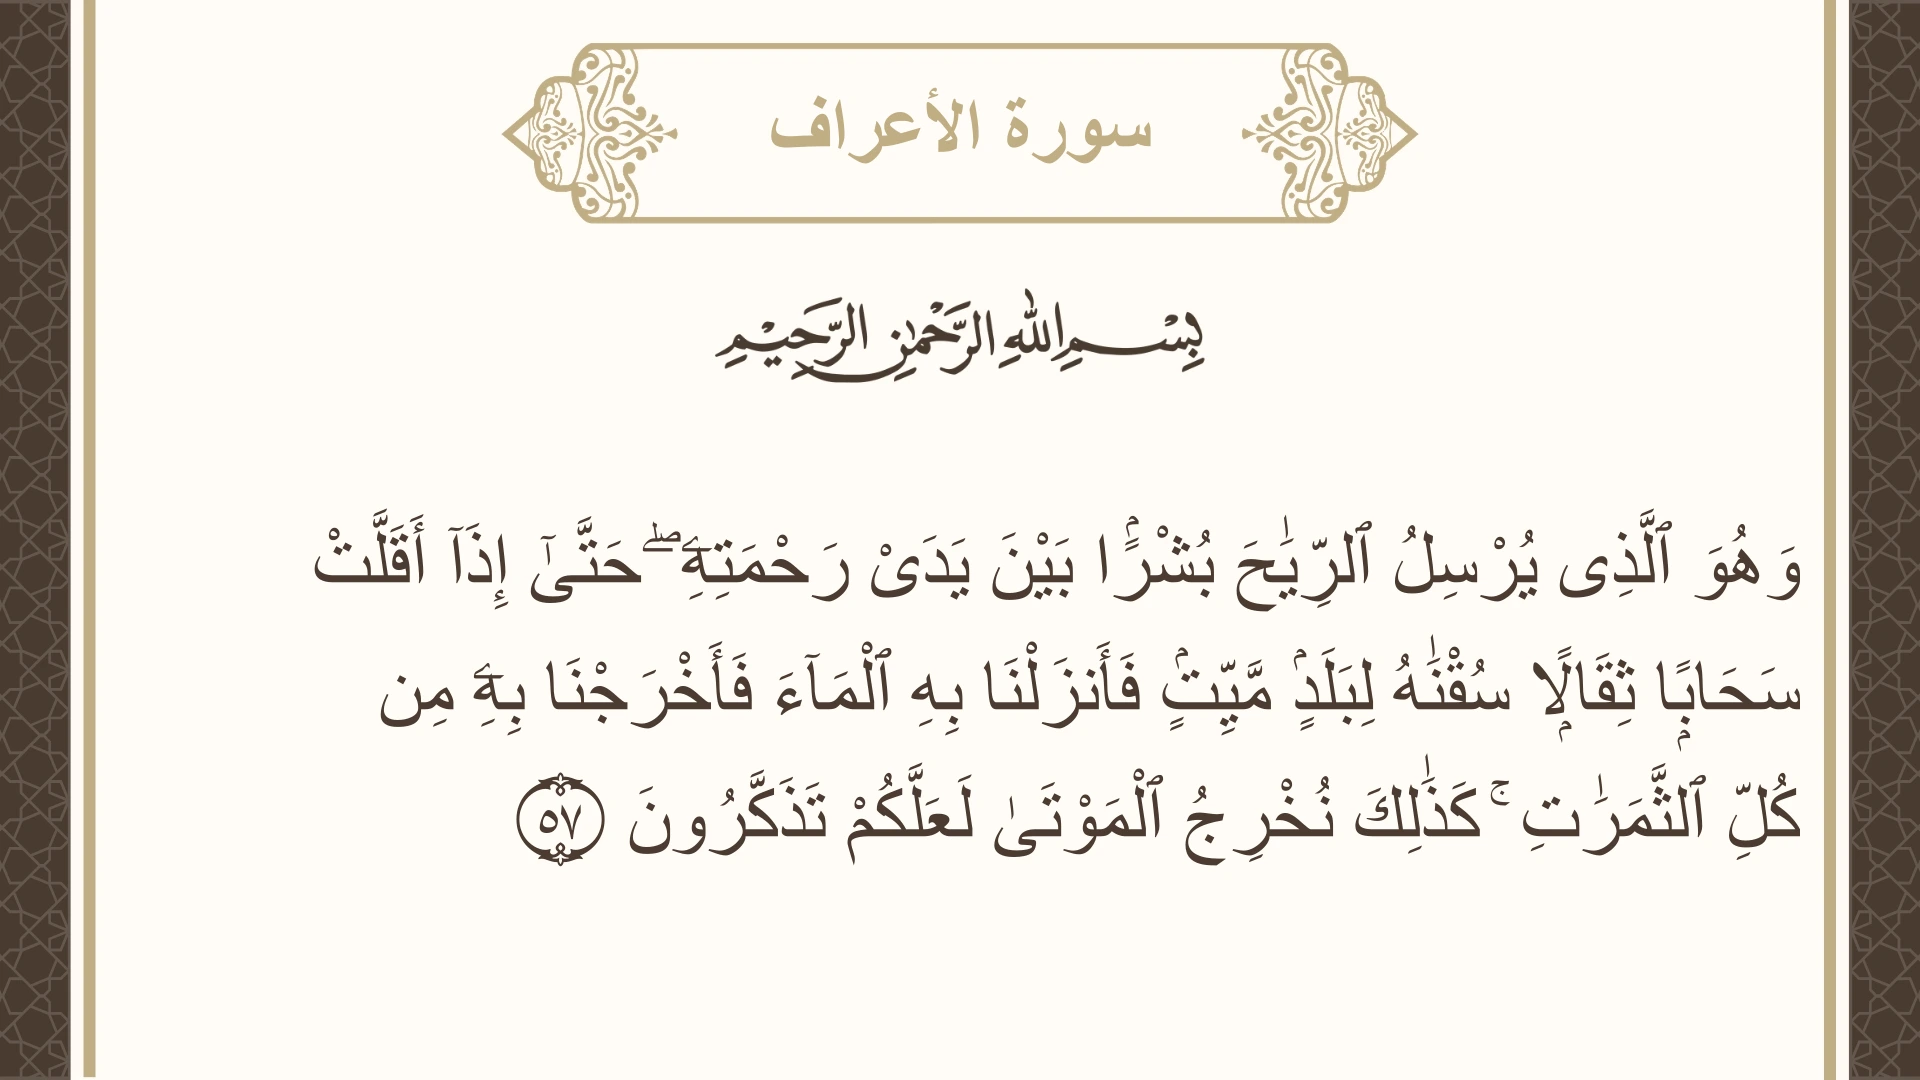 سورة الأعراف
بِسْمِ اللهِ الرَّحْمٰنِ الرَّحِيْمِ
وَهُوَ ٱلَّذِى يُرْسِلُ ٱلرِّيَٰحَ بُشْرًۢا بَيْنَ يَدَىْ رَحْمَتِهِۦ ۖ حَتَّىٰٓ إِذَآ أَقَلَّتْ
سَحَابًۭا ثِقَالًۭا سُقْنَٰهُ لِبَلَدٍۢ مَّيِّتٍۢ فَأَنزَلْنَا بِهِ ٱلْمَآءَ فَأَخْرَجْنَا بِهِۦ مِن
كُلِّ ٱلثَّمَرَٰتِ ۚ كَذَٰلِكَ نُخْرِجُ ٱلْمَوْتَىٰ لَعَلَّكُمْ تَذَكَّرُونَ ٥٧